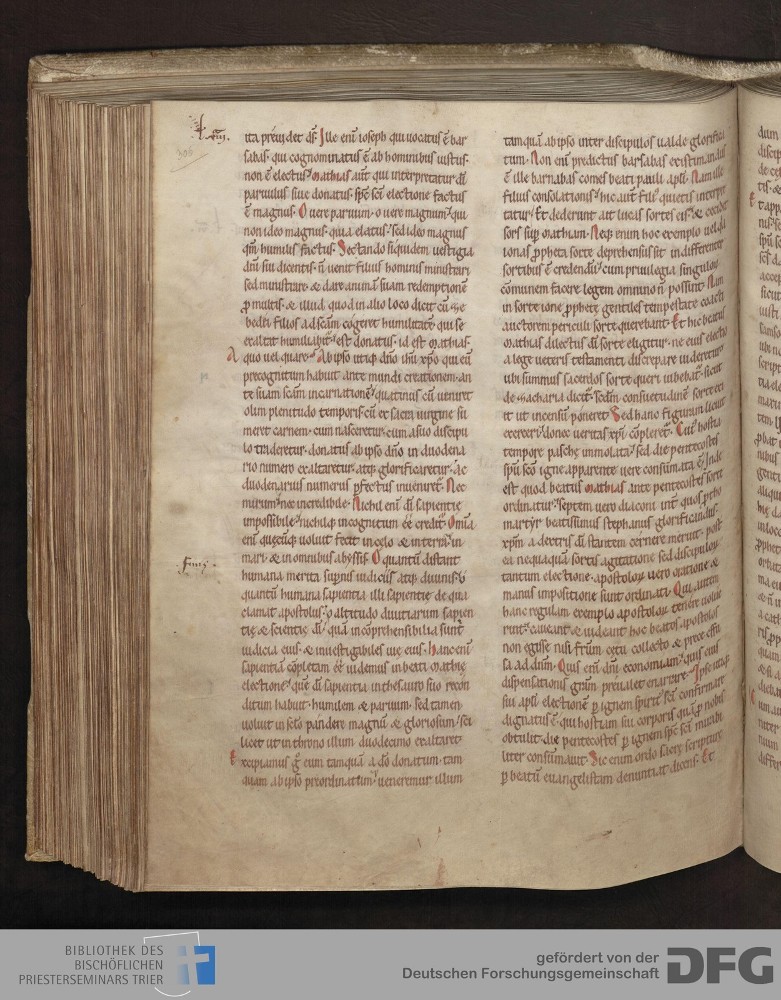 305
ita p̄uidet ds̄. Ille enī ioseph qui uocatus ē bar
sabas. qui cognominatus ē ab hominibus iustus.
non ē electus. Mathias aūt qui interpretatur dī
paruulus siue donatus. spē sc̄i electione factus
ē magnus. O uere paruum. o uere magnum. qui
non ideo magnus. quia elatus. sed ideo magnus
qm̄ humilis factus. Sectando siquidem uestigia
dn̄i sui dicentis. n̄ uenit filius hominis ministrari
sed ministrare. & dare animā suam redemptionē
ꝓ multis. & illud quod in alio loco dicit cū
bedei filios ad scām cogeret humilitatē qui se
exaltat humiliabit̄. est donatus. id est Mathias.
A quo uel quare. Ab ipso utiq dn̄o ihū xp̄o qui eū
precognitum habuit ante mundi creationem. an
te suam scām incarnationē. quatinus cū ueniret
olim plenitudo temporis cū ex sacra uirgine su
meret carnem. cum nasceretur. cum a suo discipu
lo traderetur. donatus ab ipso dn̄o in duodena
rio numero exaltaretur. atq glorificaretur. ac
duodenarius numerus ꝑfectus inueniret̄. Nec
mirum. nec incredibile. Nichil enī dī sapientię
impossibile. nichilq incognitum ēē credit̄. Omīa
enī quęcūq uoluit fecit in cęlo & in terra. in
mari. & in omnibus abyssis. O quantū distant
humana merita supnis iudiciis atq diuinis.
quantū humana sapientia illi sapientię de qua
clamat apostolus. o altitudo diuitiarum sapien
tię & scientię dī. quā incōprehensibilia sunt
iudicia eius. & inuestigabiles uię eius. Hanc enī
sapientiā cōpletam ēē uidemus in beati Mathię
electione. quē dī sapientia in thesauro suo recon
ditum habuit. humilem & paruum. sed tamen
uoluit in sclo pandere magnū & gloriosum. sci
licet ut in throno illum duodecimo exaltaret.
Excipiamus ḡ eum tamquā a dō donatum. tam
quam ab ipso preordinatum. ueneremur illum
tamquā ab ipso inter discipulos ualde glorifica
tum. Non enī predictus barsabas existimandus
ē ille barnabas comes beati pauli apli. Nam ille
filius consolationis. hic aūt fili quietis interpre
tatur. Et dederunt ait lucas sortes eis. & cecidit
sors sup mathian. Neq enim hoc exemplo uel qd
ionas ꝓpheta sorte deprehensus sit indifferenter
sortibus ē credendū. cum priuilegia singulor
cōmunem facere legem omnino n̄ possint. Nam
in sorte ione ꝓphetę gentiles tempestate coacti
auctorem periculi sorte querebant. Et hic beatus
Mathias dilectus dī sorte eligitur. ne eius electio
a lege ueteris testamenti discrepare uideretur
ubi summus sacerdos sorte queri iubebat̄. sicut
de zacharia dicit̄. Scdm consuetudinē sorte exi
it ut incensū poneret. Sed hanc figuram licuit
exerceri. donec ueritas xp̄i cōpleret̄. Cui hostia
tempore paschę immolata. sed die pentecostes
spū sc̄o igne apparente uere consūmata ē. Inde
est quod beatus Mathias ante pentecosten sorte
ordinatur. septem uero diaconi int quos ꝓtho
martyr beatissimus stephanus glorificandus.
xp̄m a dextris dī stantem cernere meruit. post
ea nequaquā sortis agitatione sed discipulor
tantum electione. apostolor uero oratione &
manus impositione sunt ordinati. Qui autem
hanc regulam exemplo apostolor tenere uolue
runt. caueant & uideant hoc beatos apostolos
non egisse nisi frūm cętu collecto & prece effu
sa ad dnm. Quis enī dn̄i economiam. quis eius
dispensationis grām preualet enarrare. Ipse utiq
sui apli electionē ꝑ ignem spiritˢ sc̄i confirmare
dignatus ē. qui hostiam sui corporis quā ꝓ nobis
obtulit. die pentecostes ꝑ ignem spc̄ sc̄i mirabi
liter consūmauit. Sic enim ordo sacrę scripturę
ꝑ beatū euangelistam denuntiat dicens. Et
BIBLIOTHEK DES
BISCHÖFLICHEN
PRIESTERSEMINARS TRIER
gefördert von der
Deutschen Forschungsgemeinschaft
DFG